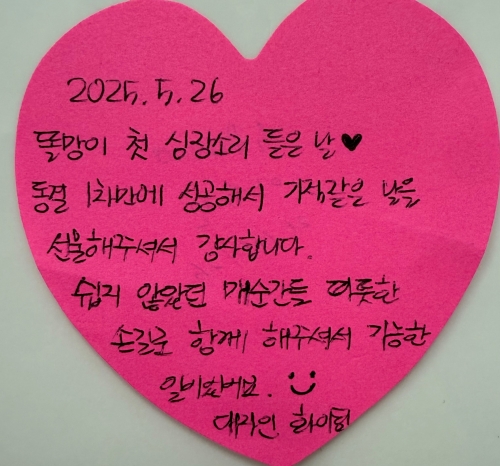 2025.5.26
똘망이 첫 심장소리 듣은 날♥
동결 1차만에 성공해서 기적같은 날을
선물해주셔서 감사합니다.
쉽지 않았던 매순간들 따뜻한
손길로 함께 해주셔서 가능한
일이였어요. :)
대자인 화이팅